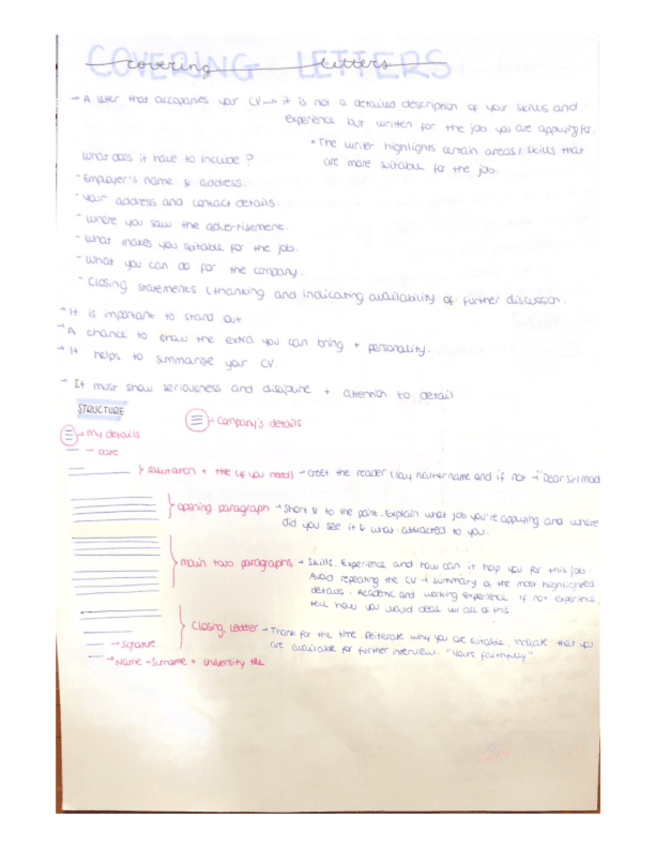 COVERING LETTERS
covering letters
→ A letter that accopanies your CV → it is not a detailed description of your skills and
experience but written for the job you are applying for.
* The writer highlights certain areas / skills that
are more suitable for the job.
What does it have to include?
- Employer's name & address.
- Your address and contact details.
- Where you saw the advertisement.
- What makes you suitable for the job.
- What you can do for the company.
- Closing statements (thanking and indicating availability of further discusson.
→ It is important to stand out
→ A chance to show the extra you can bring + personality.
→ It helps to summarise your CV
→ It must show seriousness and discipline + attention to detail
STRUCTURE
→ Company's details
→ My details
→ date
→ salutation + title (if you need) → Greet the reader (say name and if not → "Dear Sir/mad
opening paragraph → Short & to the point. Explain what job you're applying and where
did you see it & what attracted to you.
main two paragraphs → Skills. Experience and how can it help you for this job.
Avoid repeating the CV → summary of the most highlighted
details. Academic and working experience. If not experience,
tell how you would deal w/ all of this.
Closing letter → Thank for the time. Reiterate why you are suitable, indicate that you
are available for further interview. "Yours faithfully"
→ Signature
→ Name + Surname + University title